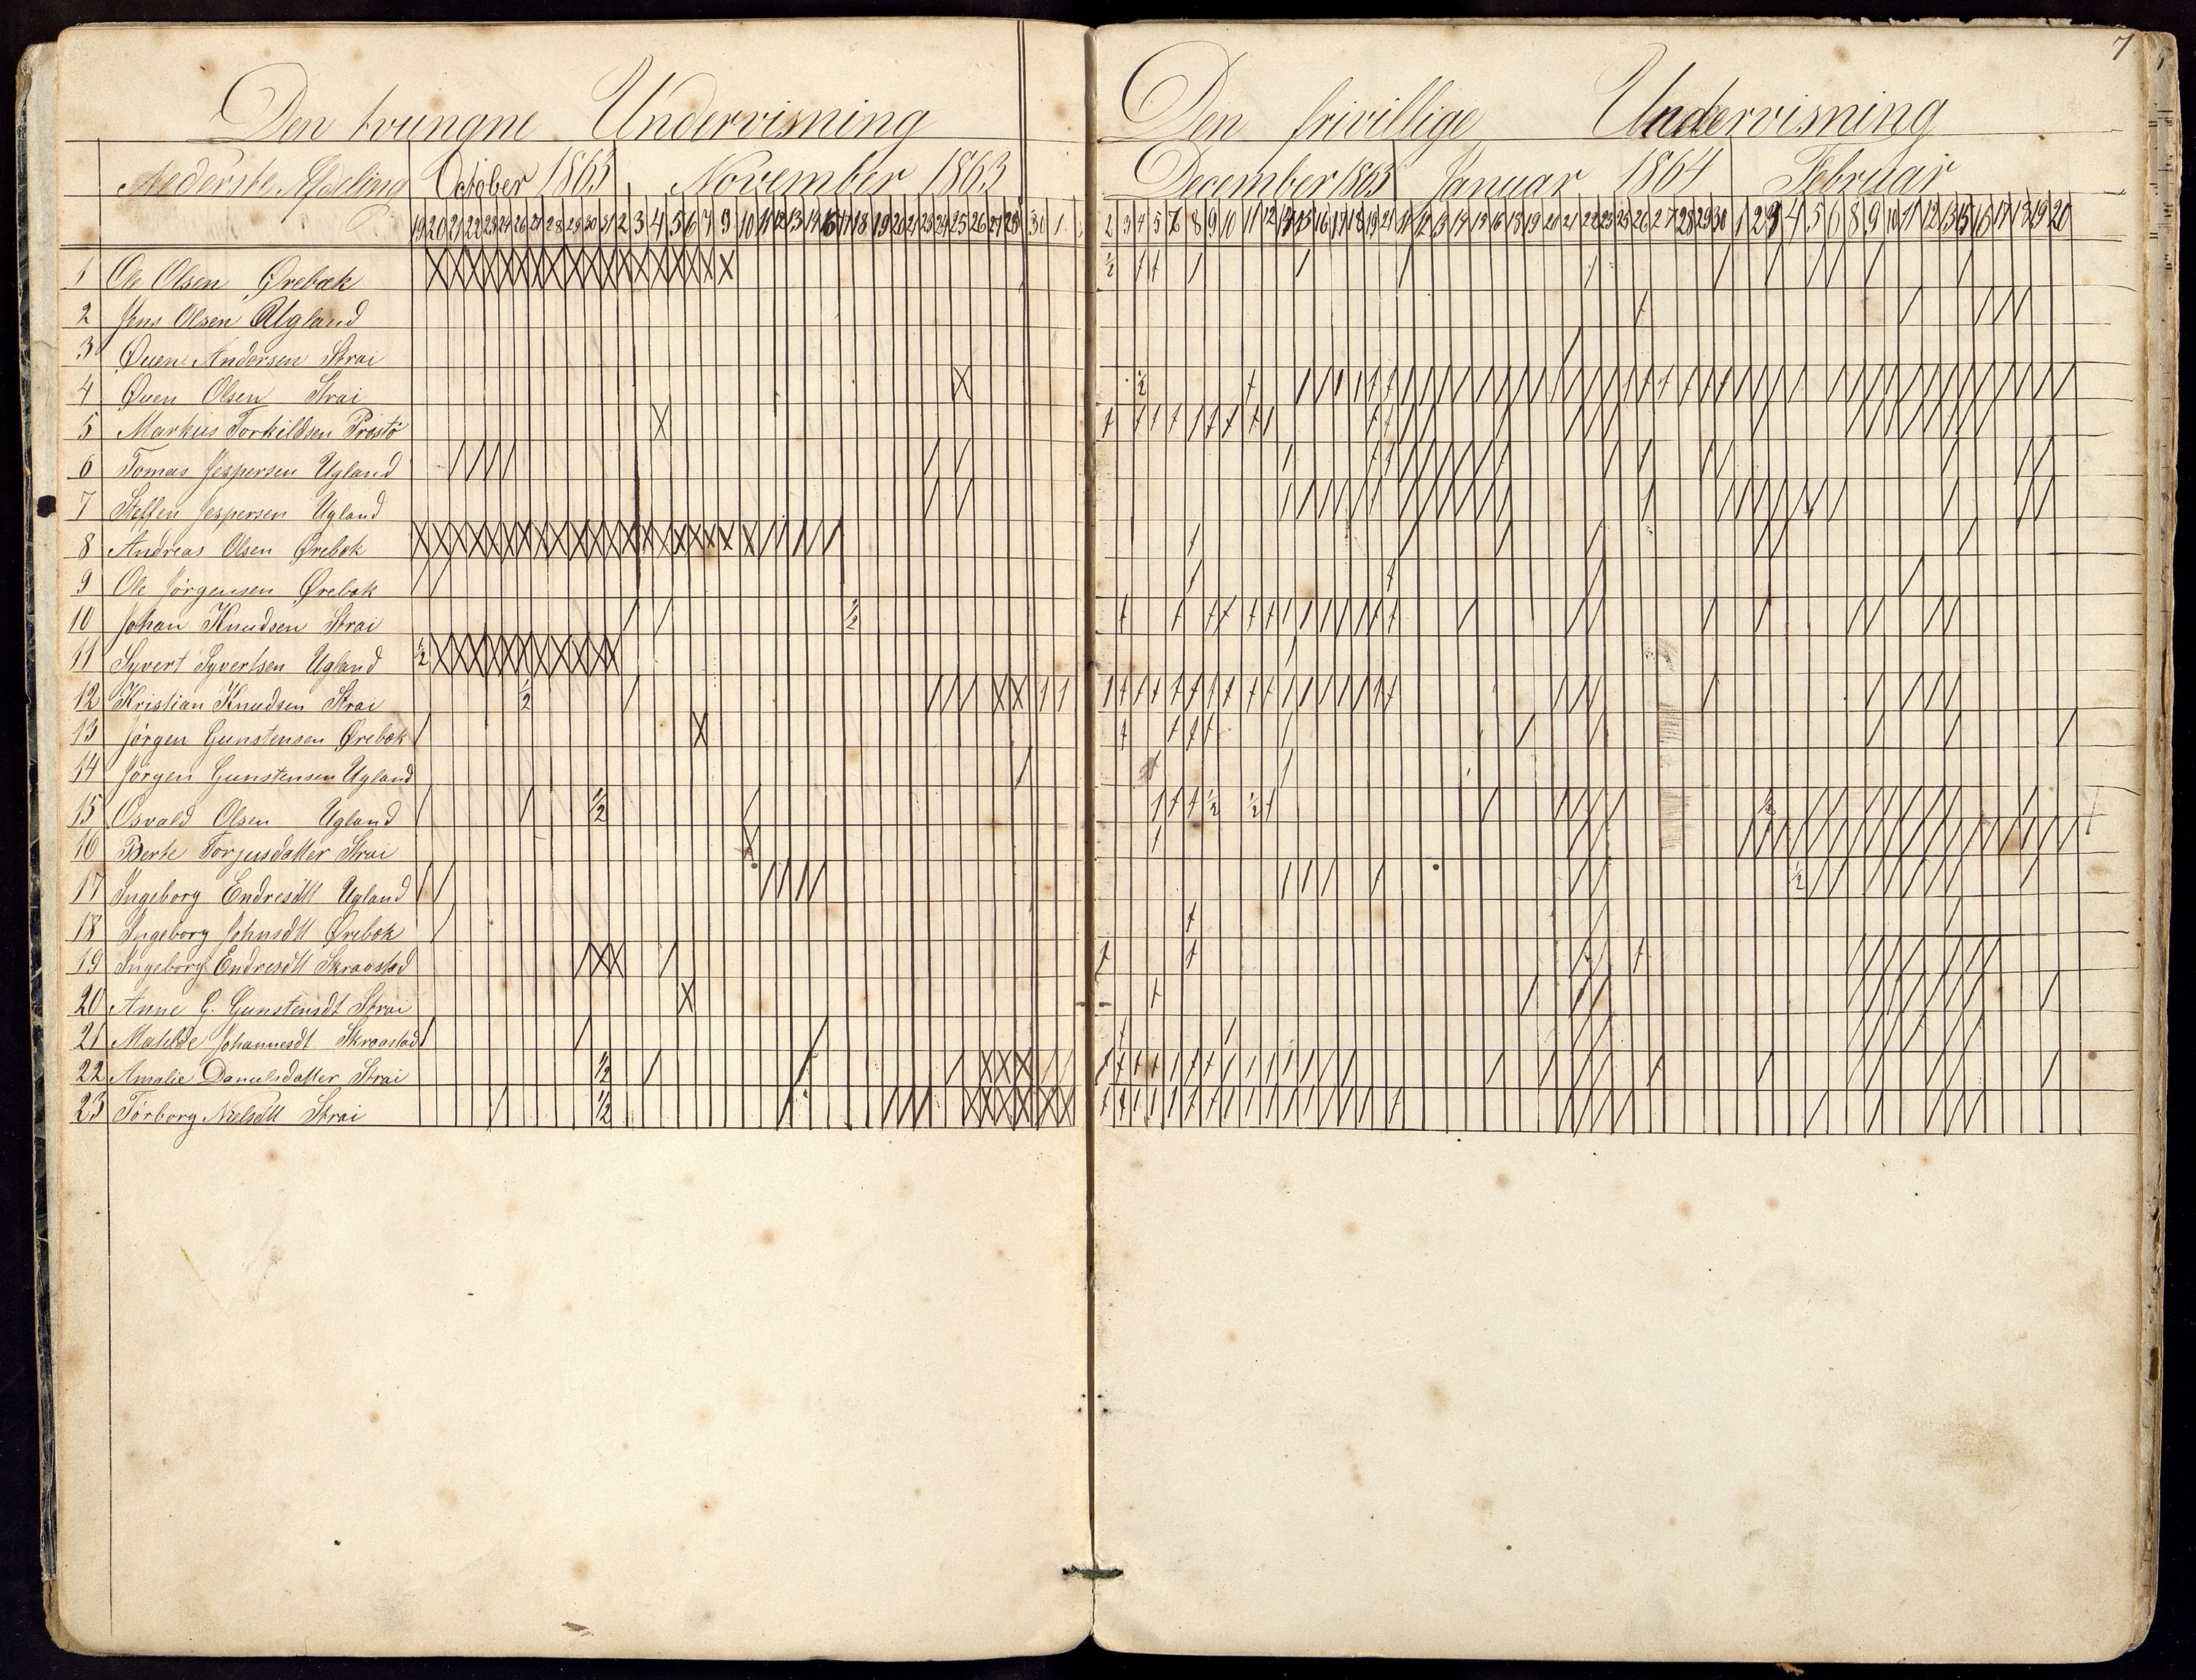 7
Den tvungne Undervisning
Den frivillige Undervisning
Nederste Afdeling October 1863 November 1863
December 1863 Januar 1864 Februar
19 20 21 22 23 24 26 27 28 29 30 31 2 3 4 5 6 7 9 10 11 12 13 14 16 17 18 19 20 21 23 24 25 26 27 28 30 1
2 3 4 5 7 8 9 10 11 12 14 15 16 17 18 19 21 11 12 13 14 15 16 18 19 20 21 22 23 25 26 27 28 29 30 1 2 3 4 5 6 8 9 10 11 12 13 15 16 17 18 19 20
1 Ole Olsen Ørebæk
2 Jens Olsen Ugland
3 Øuen Andersen Strai
4 Øuen Olsen Strai
5 Markus Torkildsen Prøstø
6 Tomas Jespersen Ugland
7 Steffen Jespersen Ugland
8 Andreas Olsen Ørebæk
9 Ole Jörgensen Ørebæk
10 Johan Knudsen Strai
11 Syvert Syvertsen Ugland
12 Kristian Knudsen Strai
13 Jörgen Gunstensen Ørebæk
14 Jörgen Gunstensen Ugland
15 Osvald Olsen Ugland
16 Berte Torjusdatter Strai
17 Ingeborg Endresdtt Ugland
18 Ingeborg Johnsdtt Ørebæk
19 Ingeborg Endresdtt Skraastad
20 Anne G. Gunstensdt Strai
21 Matilde Johannesdt Skraastad
22 Amalie Danielsdatter Strai
23 Torborg Nielsdtt Strai